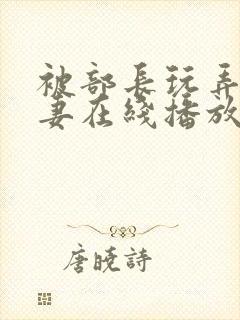 被部長玩弄
妻在綫播放
唐曉詩